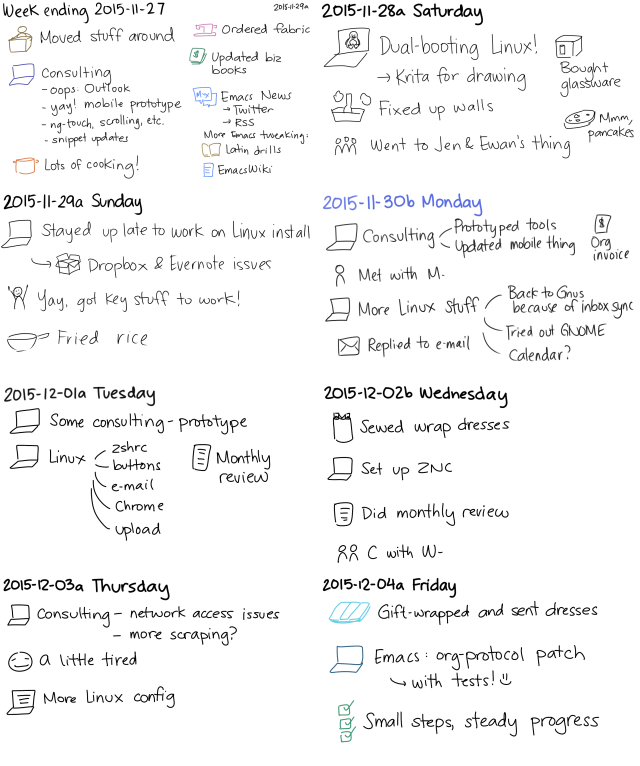 Week ending 2015-11-27
2015-11-29a
Moved stuff around
Consulting
- oops: Outlook
- yay! mobile prototype
- ng-touch, scrolling, etc.
- snippet updates
Lots of cooking!
Ordered fabric
Updated biz
books
Emacs News
→ Twitter
→ RSS
More Emacs tweaking:
Latin drills
EmacsWiki
2015-11-28a Saturday
Dual-booting Linux!
→ Krita for drawing
Fixed up walls
Went to Jen & Ewan's thing
Bought
glassware
Mmm,
pancakes
2015-11-29a Sunday
Stayed up late to work on Linux install
Dropbox & Evernote issues
Yay, got key stuff to work!
Fried rice
2015-11-30b Monday
Consulting
Prototyped tools
Updated mobile thing
$
Org
invoice
Met with M-
More Linux stuff
Back to Gnus
because of inbox sync
Tried out GNOME
Calendar?
Replied to e-mail
2015-12-01a Tuesday
Some consulting - prototype
Linux
zshrc
buttons
e-mail
Chrome
upload
Monthly
review
2015-12-02b Wednesday
Sewed wrap dresses
Set up ZNC
Did monthly review
C with W-
2015-12-03a Thursday
Consulting - network access issues
- more scraping?
A little tired
More Linux config
2015-12-04a Friday
Gift-wrapped and sent dresses
Emacs: org-protocol patch
with tests!
Small steps, steady progress